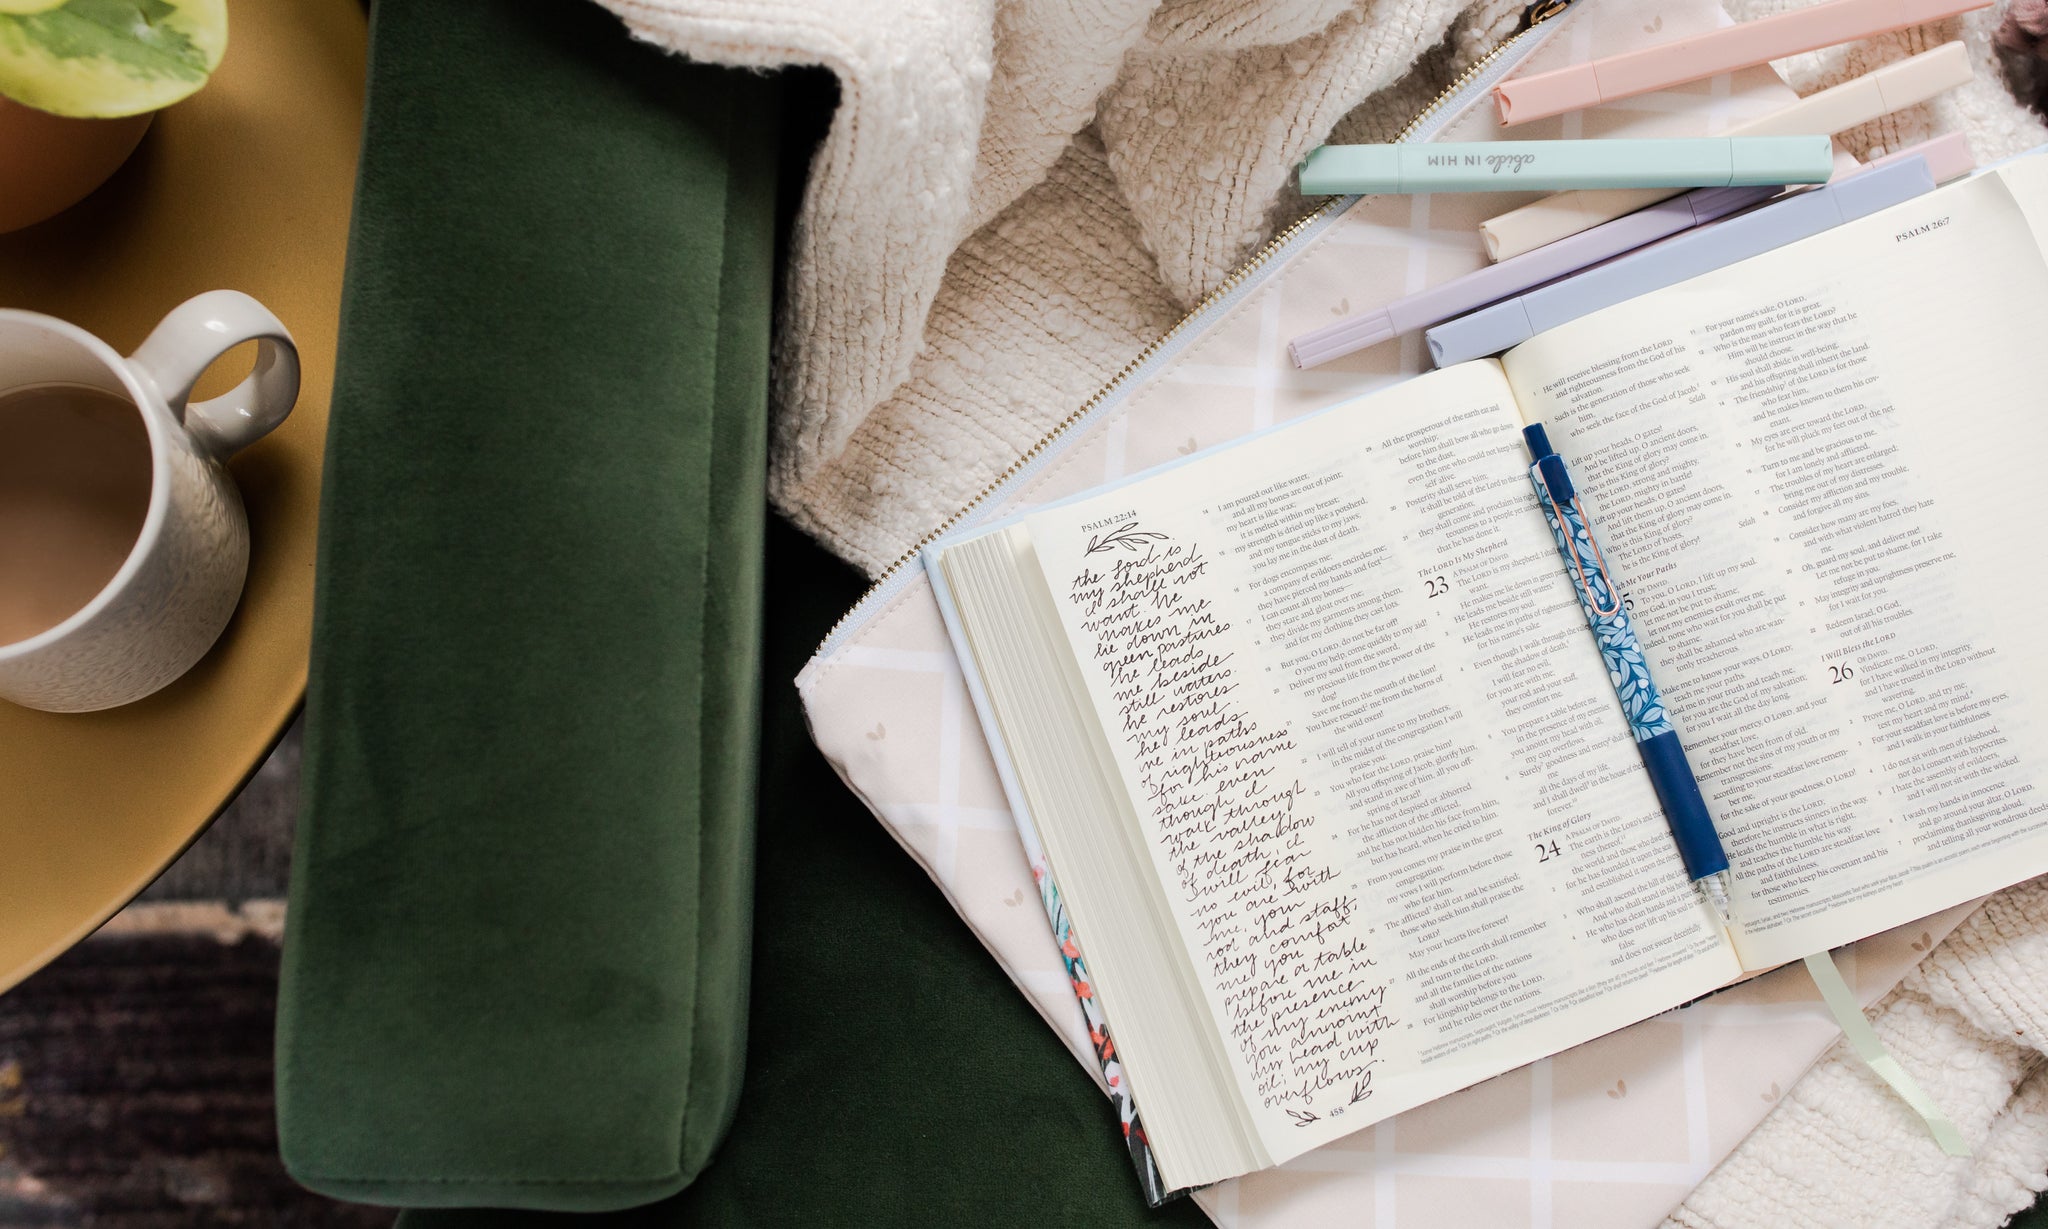 abide IN HIM
PSALM 22:14
the Lord is
my shepherd
I shall not
want. he
makes me
lie down in
green pastures.
he leads
me beside
still waters.
he restores
my soul.
he leads
me in paths
of righteousness
for his name
sake. even
though I
walk through
the valley
of the shadow
of death, I
will fear
no evil, for
you are with
me, your
rod and staff,
they comfort
me you
prepare a table
before me in
the presence
of my enemy
you annoint
my head with
oil; my cup
overflows.
458
14 I am poured out like water,
and all my bones are out of joint;
my heart is like wax;
it is melted within my breast;
15 my strength is dried up like a potsherd,
and my tongue sticks to my jaws;
you lay me in the dust of death.
16 For dogs encompass me;
a company of evildoers encircles me;
they have pierced my hands and feet
17 I can count all my bones
they stare and gloat over me;
18 they divide my garments among them,
and for my clothing they cast lots.
19 But you, O LORD, do not be far off!
O you my help, come quickly to my aid!
20 Deliver my soul from the sword,
my precious life from the power of the
dog!
21 Save me from the mouth of the lion!
You have rescued me from the horns of
the wild oxen!
22 I will tell of your name to my brothers;
in the midst of the congregation I will
praise you:
23 You who fear the LORD, praise him!
All you offspring of Jacob, glorify him,
and stand in awe of him, all you off-
spring of Israel!
24 For he has not despised or abhorred
the affliction of the afflicted,
and he has not hidden his face from him,
but has heard, when he cried to him.
25 From you comes my praise in the great
congregation;
my vows I will perform before those
who fear him.
26 The afflicted shall eat and be satisfied;
those who seek him shall praise the
LORD!
May your hearts live forever!
27 All the ends of the earth shall remember
and turn to the LORD,
and all the families of the nations
shall worship before you.
28 For kingship belongs to the LORD,
and he rules over the nations.
29 All the prosperous of the earth eat and
worship;
before him shall bow all who go down
to the dust,
even the one who could not keep him-
self alive.
30 Posterity shall serve him;
it shall be told of the Lord to the
generation;
31 they shall come and proclaim his
teousness to a people yet
that he has done it.
The LORD Is My Shepherd
23 A PSALM OF DAVID.
The LORD is my shepherd; I
2 He makes me lie down in green
He leads me beside still waters.
3 He restores my soul.
He leads me in paths of righteousness
for his name's sake.
4 Even though I walk through the
the shadow of death,
I will fear no evil,
for you are with me;
your rod and your staff,
they comfort me.
5 You prepare a table before me
in the presence of my enemies;
you anoint my head with oil;
my cup overflows.
6 Surely goodness and mercy shall
me
all the days of my life,
and I shall dwell in the house of the
The King of Glory
24 A PSALM OF DAVID.
The earth is the LORD's and the
thereof,
the world and those who dwell
2 for he has founded it upon the
and established it upon the
3 Who shall ascend the hill of the
And who shall stand in his
4 He who has clean hands and a
who does not lift up his soul to
false
and does not swear deceitfully.
PSALM 26:7
5 He will receive blessing from the LORD
and righteousness from the God of his
salvation.
6 Such is the generation of those who seek
him,
who seek the face of the God of Jacob.
Selah
Lift up your heads, O gates!
And be lifted up, O ancient doors,
that the King of glory may come in.
Who is this King of glory?
The LORD, strong and mighty,
the LORD, mighty in battle!
Lift up your heads, O gates!
And lift them up, O ancient doors,
that the King of glory may come in.
Who is this King of glory?
The LORD of hosts,
he is the King of glory!
Selah
Me Your Paths
OF DAVID.
To you, O LORD, I lift up my soul.
my God, in you I trust;
let me not be put to shame;
let not my enemies exult over me.
Indeed, none who wait for you shall be
put to shame;
they shall be ashamed who are wan-
tonly treacherous.
Make me to know your ways, O LORD;
teach me your paths.
Lead me in your truth and teach me,
for you are the God of my salvation;
for you I wait all the day long.
Remember your mercy, O LORD, and your
steadfast love,
for they have been from of old.
Remember not the sins of my youth or my
transgressions;
according to your steadfast love remem-
ber me,
for the sake of your goodness, O LORD!
Good and upright is the LORD;
therefore he instructs sinners in the way.
He leads the humble in what is right,
and teaches the humble his way.
All the paths of the LORD are steadfast love
and faithfulness,
for those who keep his covenant and his
testimonies.
11 For your name's sake, O LORD,
pardon my guilt, for it is great.
12 Who is the man who fears the LORD?
Him will he instruct in the way that he
should choose.
13 His soul shall abide in well-being,
and his offspring shall inherit the land.
14 The friendship of the LORD is for those
who fear him,
and he makes known to them his cov-
enant.
15 My eyes are ever toward the LORD,
for he will pluck my feet out of the net.
16 Turn to me and be gracious to me,
for I am lonely and afflicted.
17 The troubles of my heart are enlarged;
bring me out of my distresses.
18 Consider my affliction and my trouble,
and forgive all my sins.
19 Consider how many are my foes,
and with what violent hatred they hate
me.
20 Oh, guard my soul, and deliver me!
Let me not be put to shame, for I take
refuge in you.
21 May integrity and uprightness preserve me,
for I wait for you.
22 Redeem Israel, O God,
out of all his troubles.
I Will Bless the LORD
26 OF DAVID.
Vindicate me, O LORD,
for I have walked in my integrity,
and I have trusted in the LORD without
wavering.
2 Prove me, O LORD, and try me;
test my heart and my mind.
3 For your steadfast love is before my eyes,
and I walk in your faithfulness.
4 I do not sit with men of falsehood,
nor do I consort with hypocrites.
5 I hate the assembly of evildoers,
and I will not sit with the wicked.
6 I wash my hands in innocence
and go around your altar, O LORD,
7 proclaiming thanksgiving aloud,
and telling all your wondrous deeds.